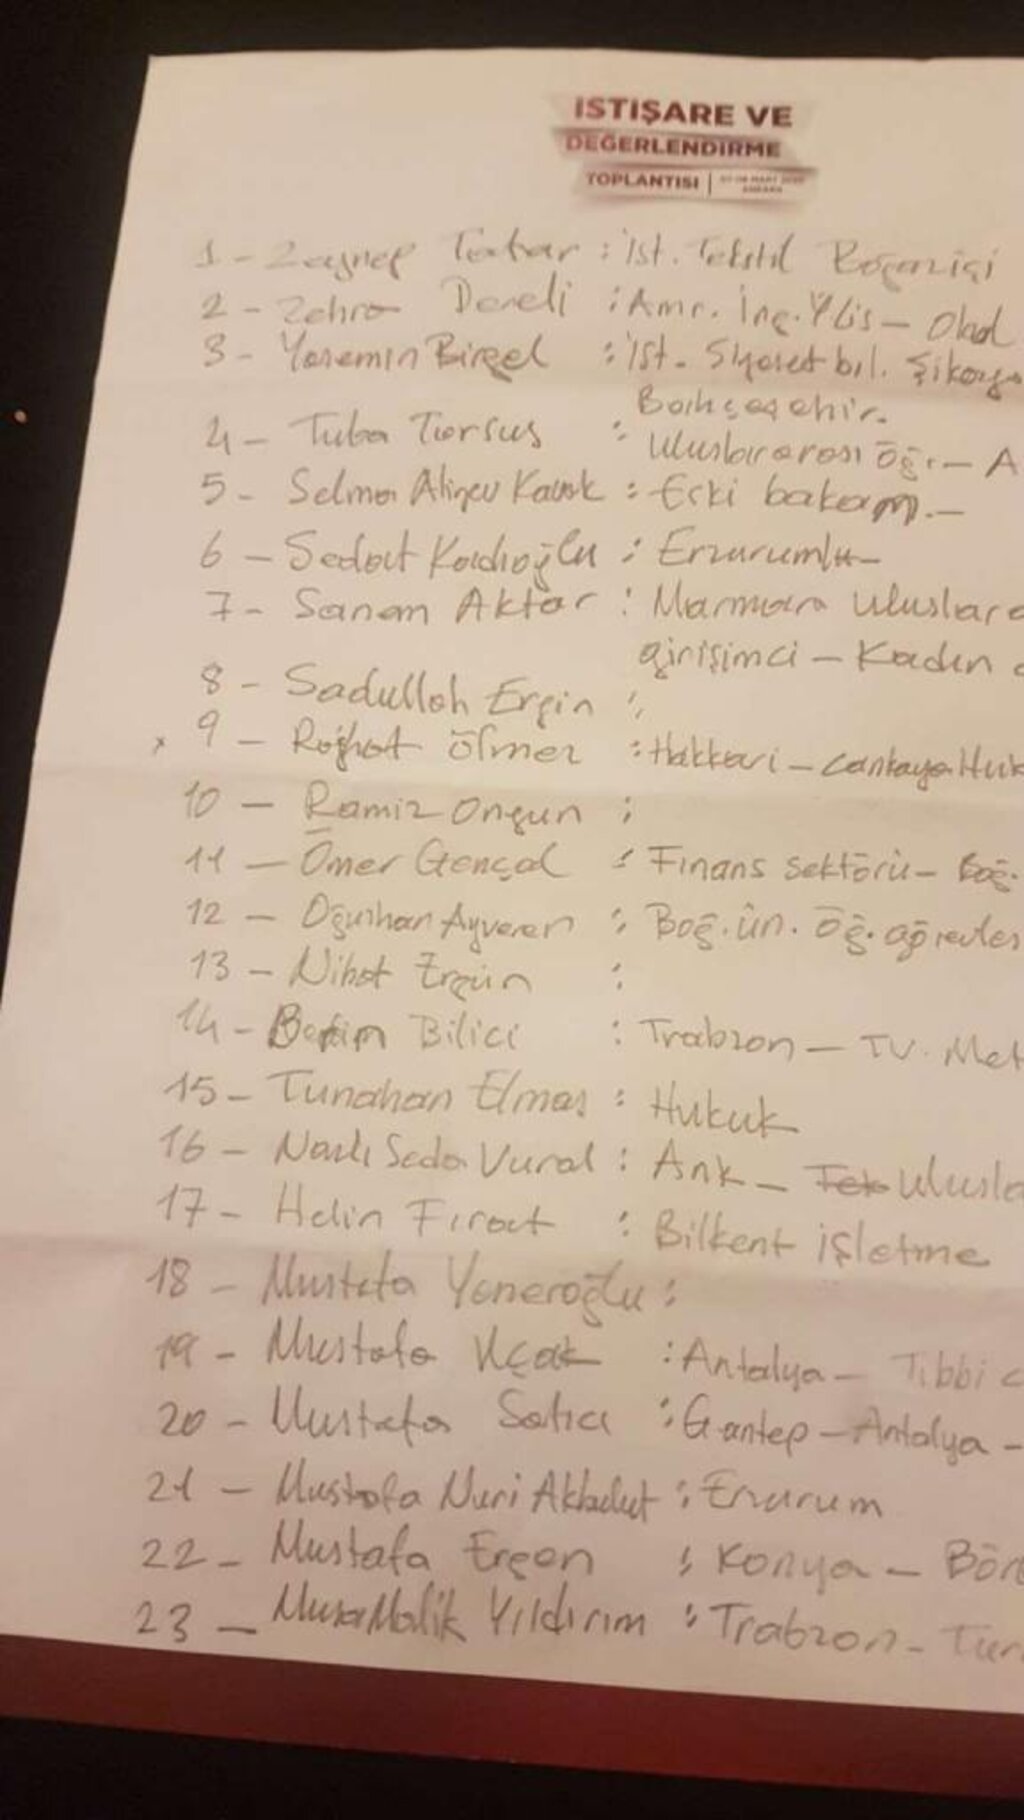 İSTİŞARE VE
DEĞERLENDİRME
TOPLANTISI
1 - Zeynep Tatar : İst. Tekstil Boğaziçi
2 - Zehra Dereli : Amr. İng. Y Lis - Okul
3 - Yasemin Birgel : İst. Siyaset bil. Şikago
Bahçeşehir.
4 - Tuba Torsus : Uluslararası Öğr. - A
5 - Selma Aliye Kavak : Eski bakan. -
6 - Sedat Kadıoğlu : Erzurumlu -
7 - Sanem Aktar : Marmara Uluslara
girişimci - Kadın
8 - Sadullah Ergin :
x 9 - Rojhat Ölmez : Hakkari - Çankaya Huk
10 - Ramiz Ongun :
11 - Ömer Gençal : Finans Sektörü - Boğ.
12 - Oğuzhan Ayveren : Boğ. Ün. Öğ.
13 - Nihat Ergün :
14 - Bilici : Trabzon - TV. Met
15 - Tunahan Elmas : Hukuk
16 - Nazlı Seda Vural : Ank - Ulusla
17 - Helin Fırat : Bilkent işletme
18 - Mustafa Yeneroğlu :
19 - Mustafa Uçak : Antalya - Tıbbi c
20 - Mustafa Satıcı : Gantep - Antalya -
21 - Mustafa Nuri Akbulut : Erzurum
22 - Mustafa Ergen : Konya - Bör
23 - Musa Malik Yıldırım : Trabzon - Tur